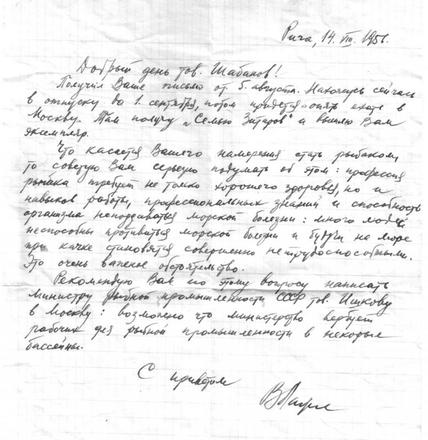 Рига, 14. VIII. 1951.
Добрый день тов. Шабанов!
Получил Ваше письмо от 5. августа. Нахожусь сейчас
в отпуску до 1. сентября, потом придется опять ехать в
Москву. Там получу „Семью Зитаров" и вышлю Вам
экземпляр.
Что касается Вашего намерения стать рыбаком
то советую Вам серьезно подумать об этом: профессия
рыбака требует не только хорошего здоровья, но и
навыков работы, профессиональных знаний и способность
организма неподдаваться морской болезни: много людей
неспособны противиться морской болезни и будучи на море
при качке становятся совершенно нетрудоспособными.
Это очень важное обстоятельство.
Рекомендую Вам по этому вопросу написать
министру рыбной промышленности СССР тов. Ишкову
в Москву: возможно что министерство вербует
рабочих для рыбной промышленности в некоторые
бассейны.
С приветом
ВЛацис